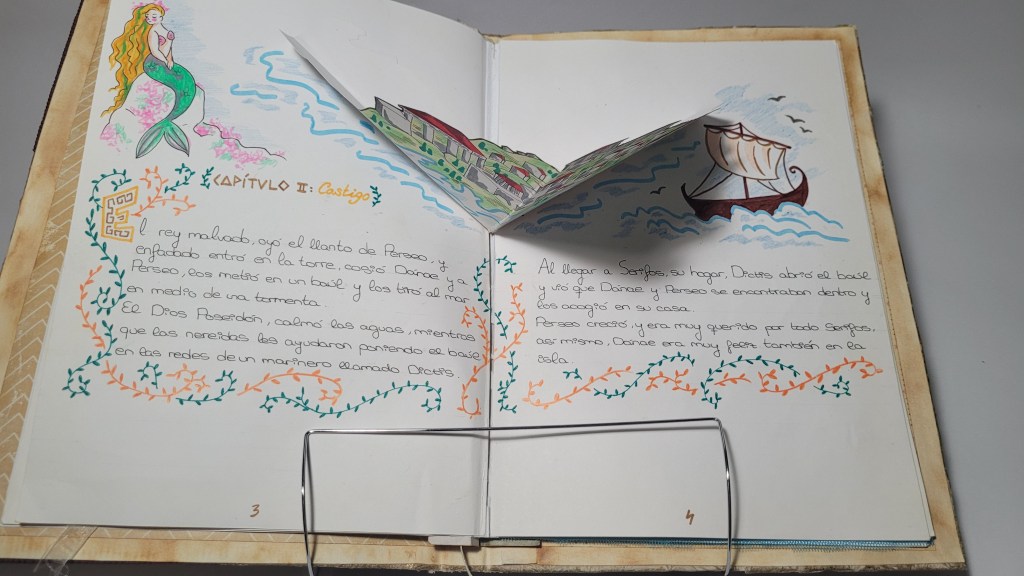 CAPÍTVLO II: Castigo
El rey malvado, oyó el llanto de Perseo, y
enfadado entró en la torre, cogió Dánae y a
Perseo, los metió en un baúl y los tiró al mar
en medio de una tormenta.
El Dios Poseidón, calmó las aguas, mientras
que las nereidas les ayudaron poniendo el baúl
en las redes de un marinero llamado Dictis.
3
Al llegar a Serifos, su hogar, Dictis abrió el baúl
y vió que Dánae y Perseo se encontraban dentro y
los acogió en su casa.
Perseo creció, y era muy querido por todo Serifos,
así mismo, Dánae era muy feliz también en la
isla.
4